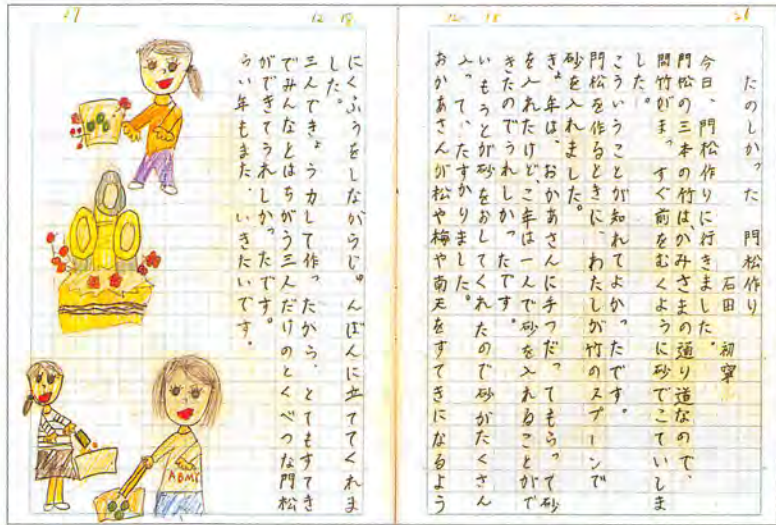 26
12 18
たのしかった 門松作り
石田 初寧
今日、門松作りに行きました。
門松の三本の竹は、かみさまの通り道なので、
間竹がまっすぐ前をむくように砂でこていしま
した。
こういうことが知れてよかったです。
門松を作るときに、わたしが竹のスプーンで
砂を入れました。
きょ年は、おかあさんに手つだってもらって砂
を入れたけど、こ年は一人で砂を入れることがで
きたのでうれしかったです。
いもうとが砂をおしてくれたので砂がたくさん
入って、たすかりました。
おかあさんが松や梅や南天をすてきになるよう
27
12 18
にくふうをしながらじゅんばんに立ててくれま
した。
三人できょう力して作ったから、とてもすてき
でみんなとはちがう三人だけのとくべつな門松
ができてうれしかったです。
らい年もまた、いきたいです。
ABM